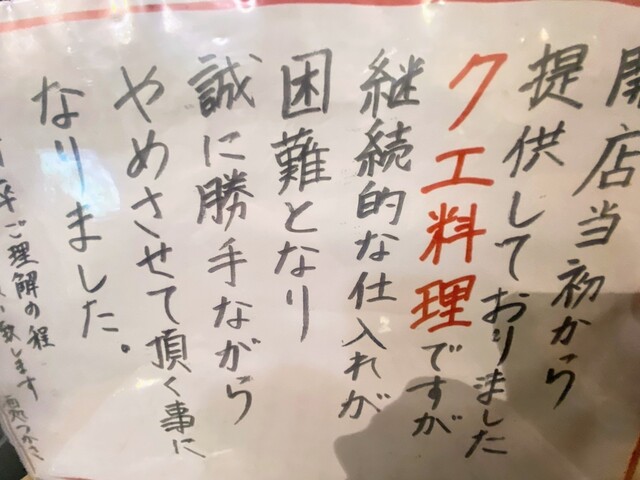 開店当初から
提供しておりました
クエ料理ですが
継続的な仕入れが
困難となり
誠に勝手ながら
やめさせて頂く事に
なりました。
ご理解の程
致します